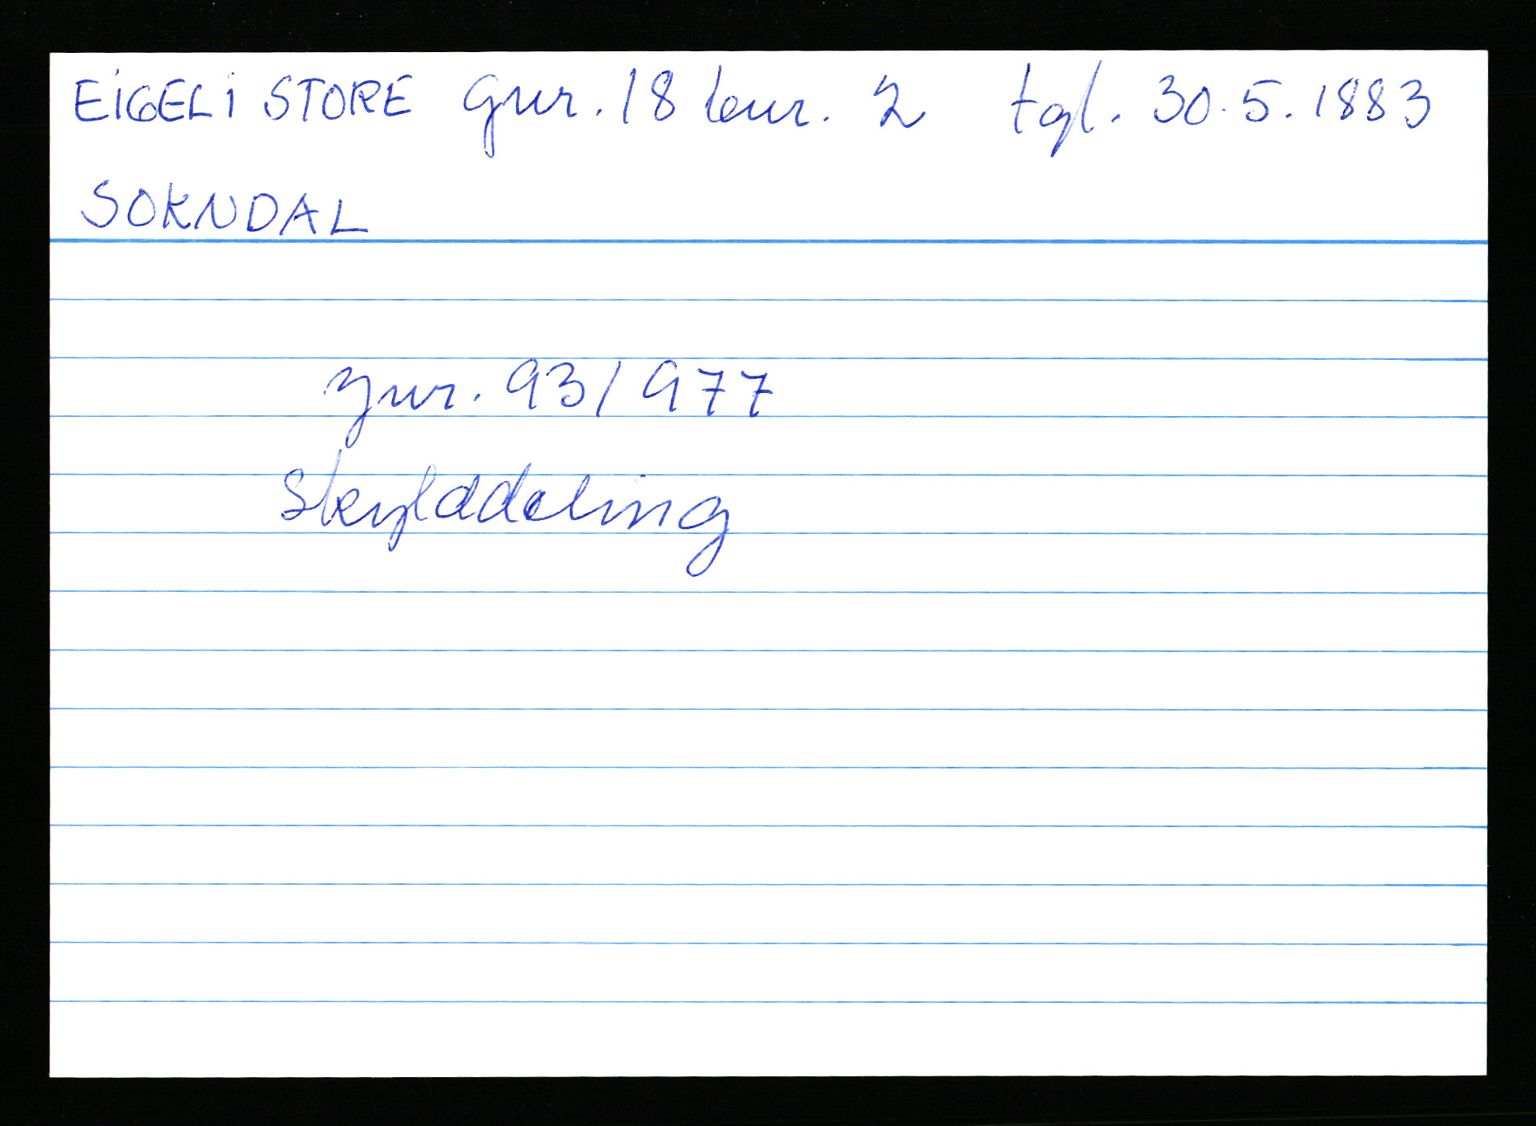 EIGELI STORE gnr. 18 bnr. 2 tgl. 30.5.1883
SOKNDAL
jnr. 93/977
Skylddeling